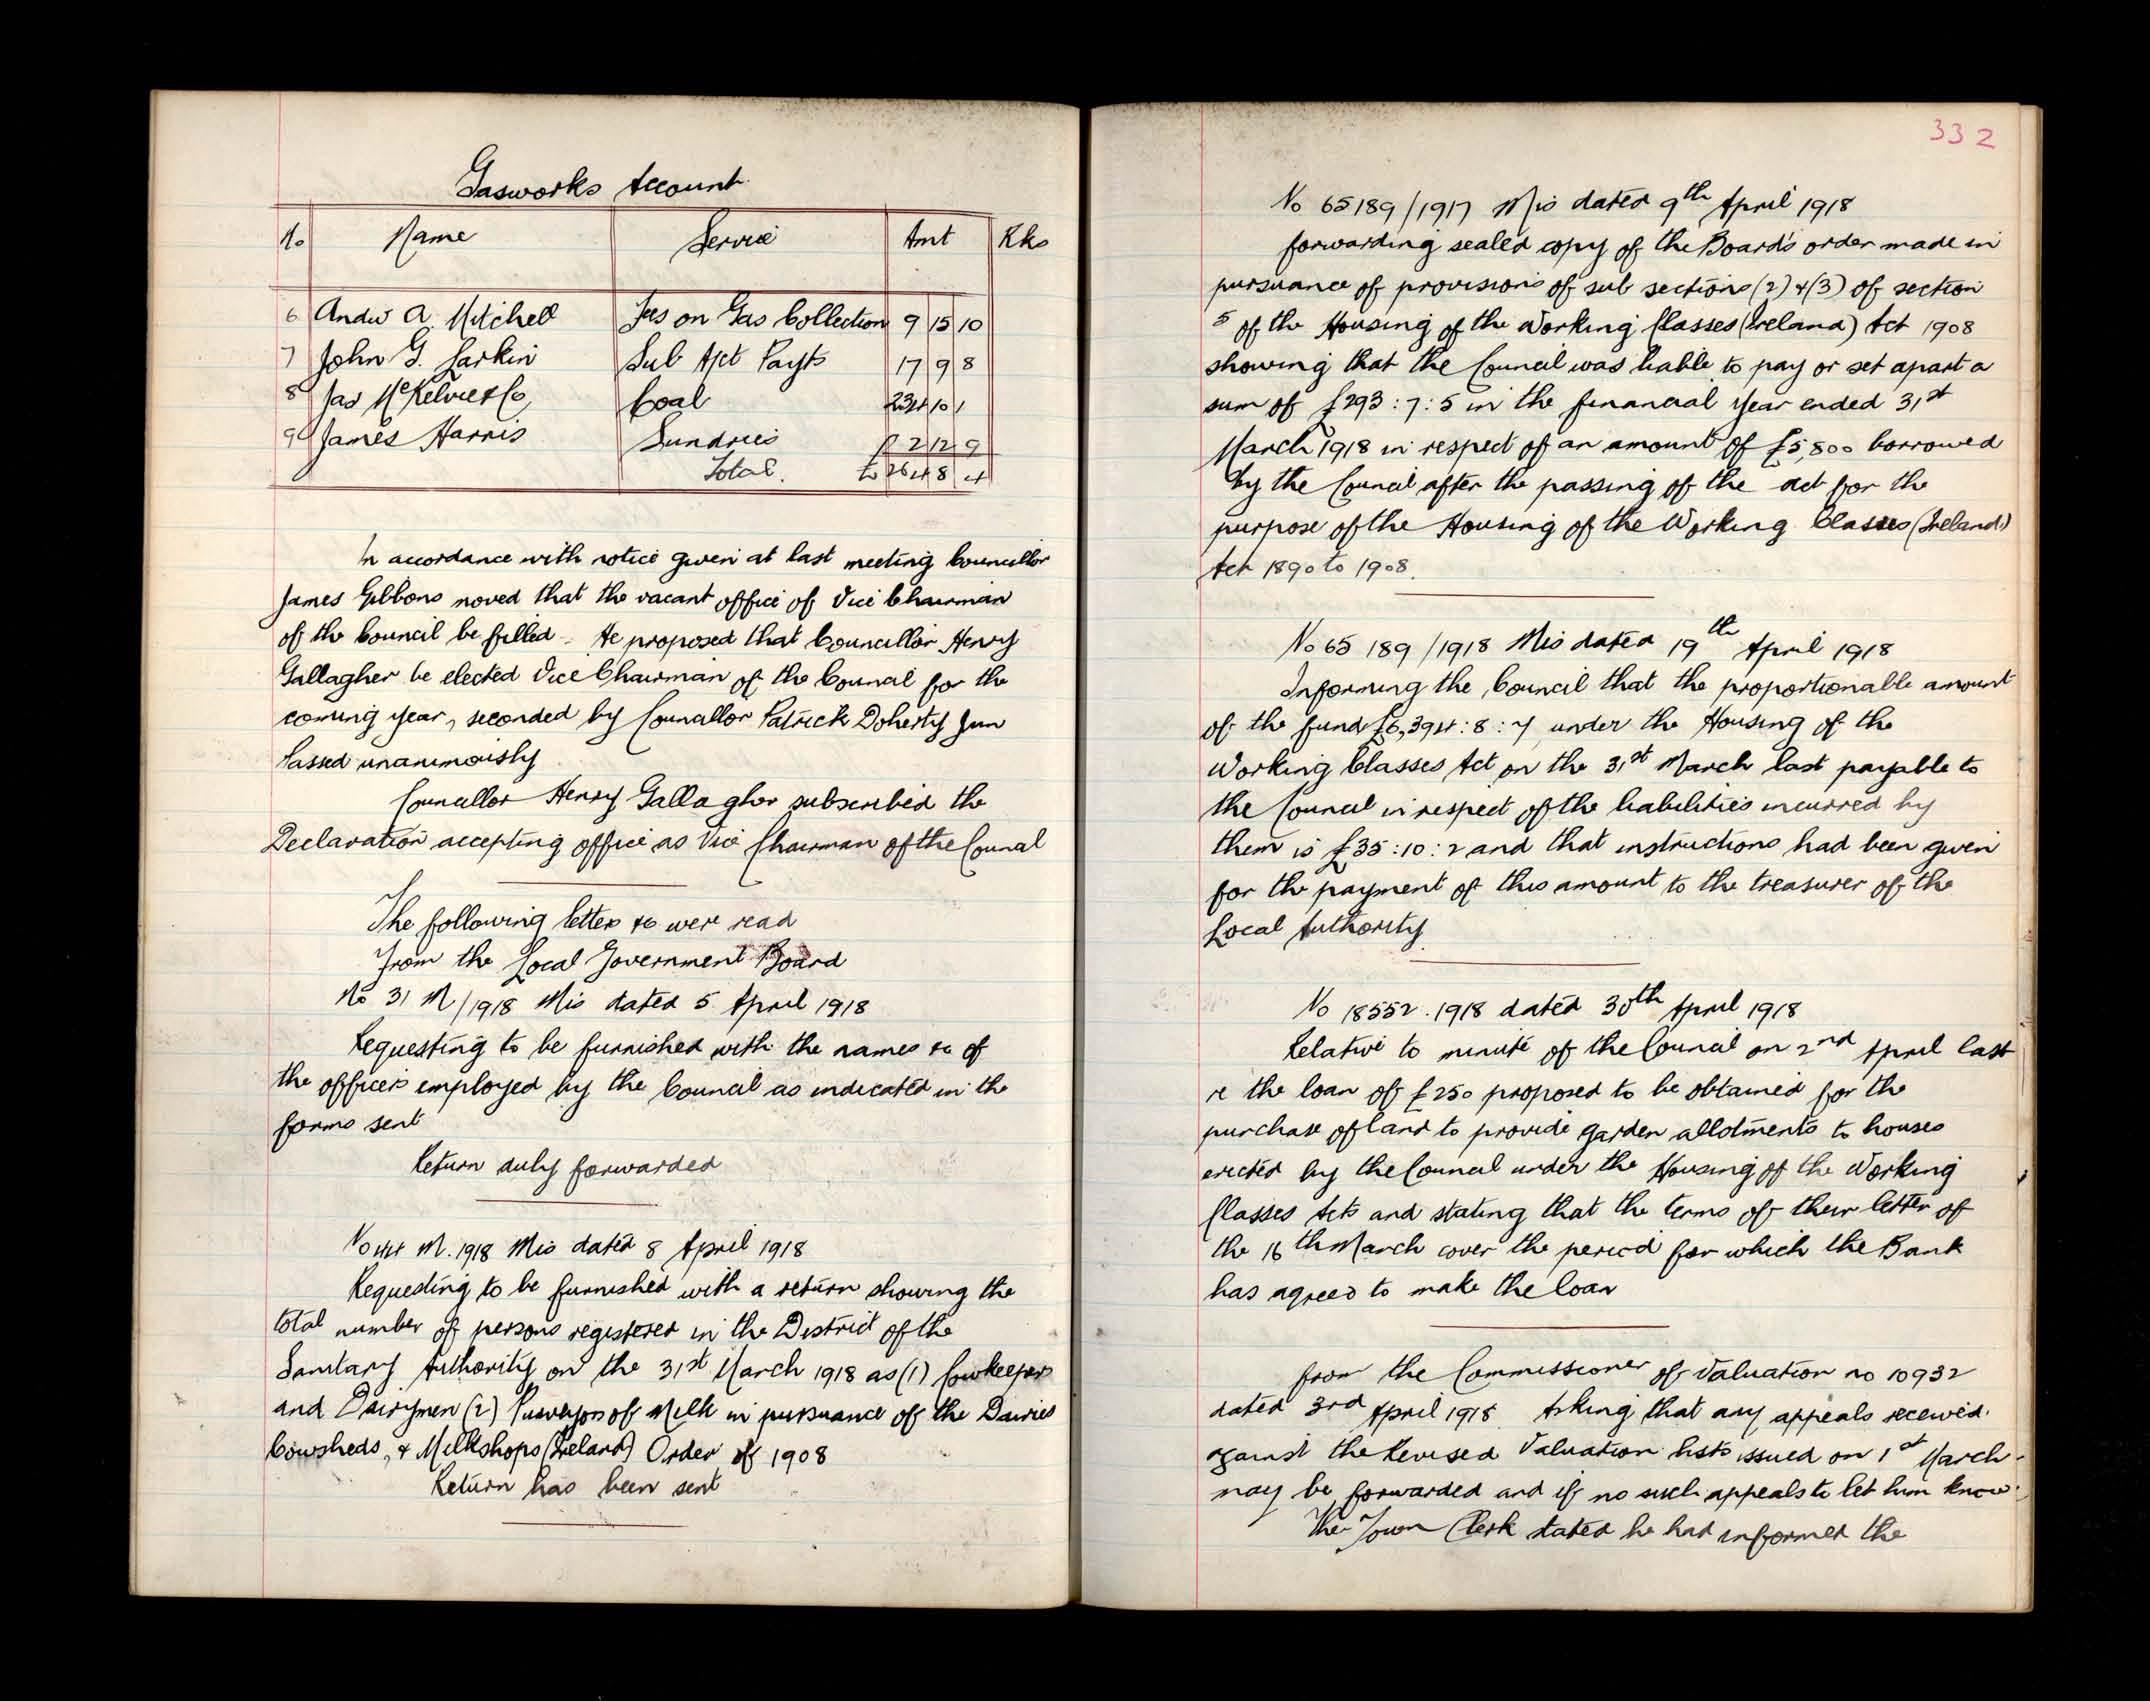 Gasworks Account
No Name Service Amt Rks
6 Andw A Mitchell Fees on Gas Collection 9 15 10
7 John G. Larkin Sub Ajct Payts 17 9 8
8 Jas McKelvie & Co, Coal 234 10 1
9 James Harris Sundries £ 2 12 9
Total. £ 264 8 4
In accordance with notice given at last meeting Councillor
James Gibbons moved that the vacant office of Vice Chairman
of the Council be filled. He proposed that Councillor Henry
Gallagher be elected Vice Chairman of the Council for the
coming year, seconded by Councillor Patrick Doherty Jun
Passed unanimously
Councillor Henry Gallagher subscribed the
Declaration accepting office as Vice Chairman of the Council
The following letters &c were read
From the Local Government Board
No 31 M/1918 Mis dated 5 April 1918
Requesting to be furnished with the names &c of
the officers employed by the Council as indicated in the
forms sent
Return duly forwarded
No 44 M. 1918 Mis dated 8 April 1918
Requesting to be furnished with a return showing the
total number of persons registered in the District of the
Sanitary Authority on the 31st March 1918 as (1) Cowkeepers
and Dairymen (2) Purveyors of Milk in pursuance of the Dairies
Cowsheds, & Milkshops (Ireland) Order of 1908
Return has been sent
332
No 65189/1917 Mis dated 9th April 1918
forwarding sealed copy of the Board's order made in
pursuance of provisions of sub sections (2) & (3) of section
5 of the Housing of the Working Classes (Ireland) Act 1908
showing that the Council was liable to pay or set apart a
sum of £293:7:5 in the financial year ended 31st
March 1918 in respect of an amount of £5,800 borrowed
by the Council after the passing of the act for the
purpose of the Housing of the Working Classes (Ireland)
Act 1890 to 1908.
No 65 189/1918 Mis dated 19th April 1918
Informing the Council that the proportionable amount
of the fund £6,394:8:7 under the Housing of the
Working Classes Act on the 31st March last payable to
the Council in respect of the liabilities incurred by
them is £35:10:2 and that instructions had been given
for the payment of this amount to the treasurer of the
Local Authority.
No 18552.1918 dated 30th April 1918
Relative to minute of the Council on 2nd April last
re the loan of £250 proposed to be obtained for the
purchase of land to provide garden allotments to houses
erected by the Council under the Housing of the Working
Classes Acts and stating that the terms of their letter of
the 16th March cover the period for which the Bank
has agreed to make the loan
from the Commissioner of Valuation no 10932
dated 3rd April 1918 Asking that any appeals received
against the Revised Valuation lists issued on 1st March
may be forwarded and if no such appeals to let him know.
The Town Clerk stated he had informed the